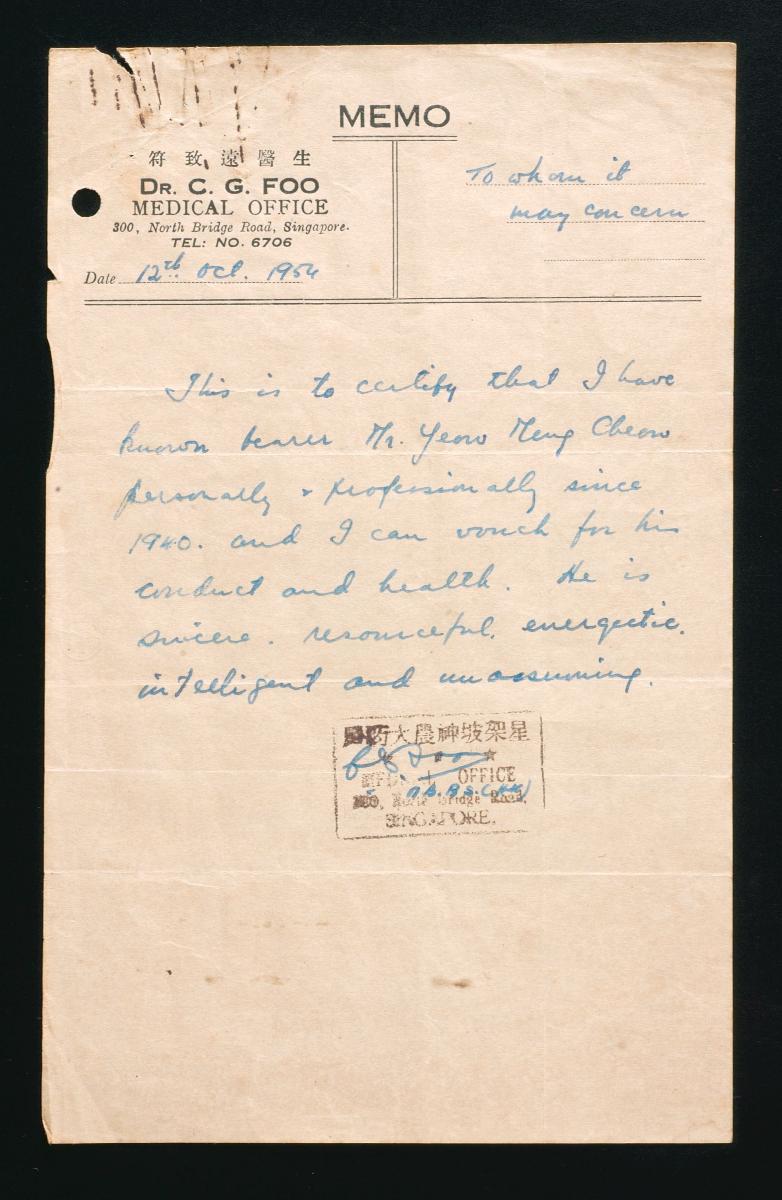 MEMO
符致遠醫生
DR. C. G. FOO
MEDICAL OFFICE
300, North Bridge Road, Singapore.
TEL: NO. 6706
Date 12th Oct. 1954
To whom it
may concern
This is to certify that I have
known bearer Mr. Yeow Meng Cheow
personally & professionally since
1940. and I can vouch for his
conduct and health. He is
sincere. resourceful. energetic.
intelligent and unassuming.
大農神坡架星
CG Foo
OFFICE
M.B.B.S. (HK)
North Bridge Road.
SINGAPORE.